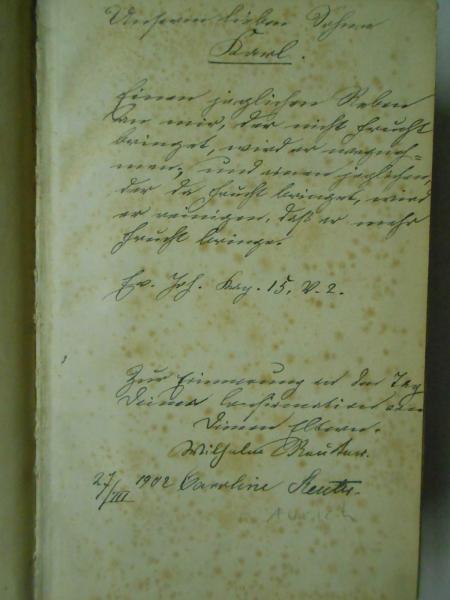 Unserm lieben Sohne
Karl.
Einen jeglichen Reben
an mir, der nicht Frucht
bringet, wird er wegneh=
men, und einen jeglichen,
der da Frucht bringet, wird
er reinigen, daß er mehr
Frucht bringe.
Ev. Joh. Kap. 15, V. 2.
Zur Erinnerung an den Tag
Deiner Confirmation von
Deinen Eltern.
Wilhelm Reuter.
27/III 1902 Caroline Reuter.